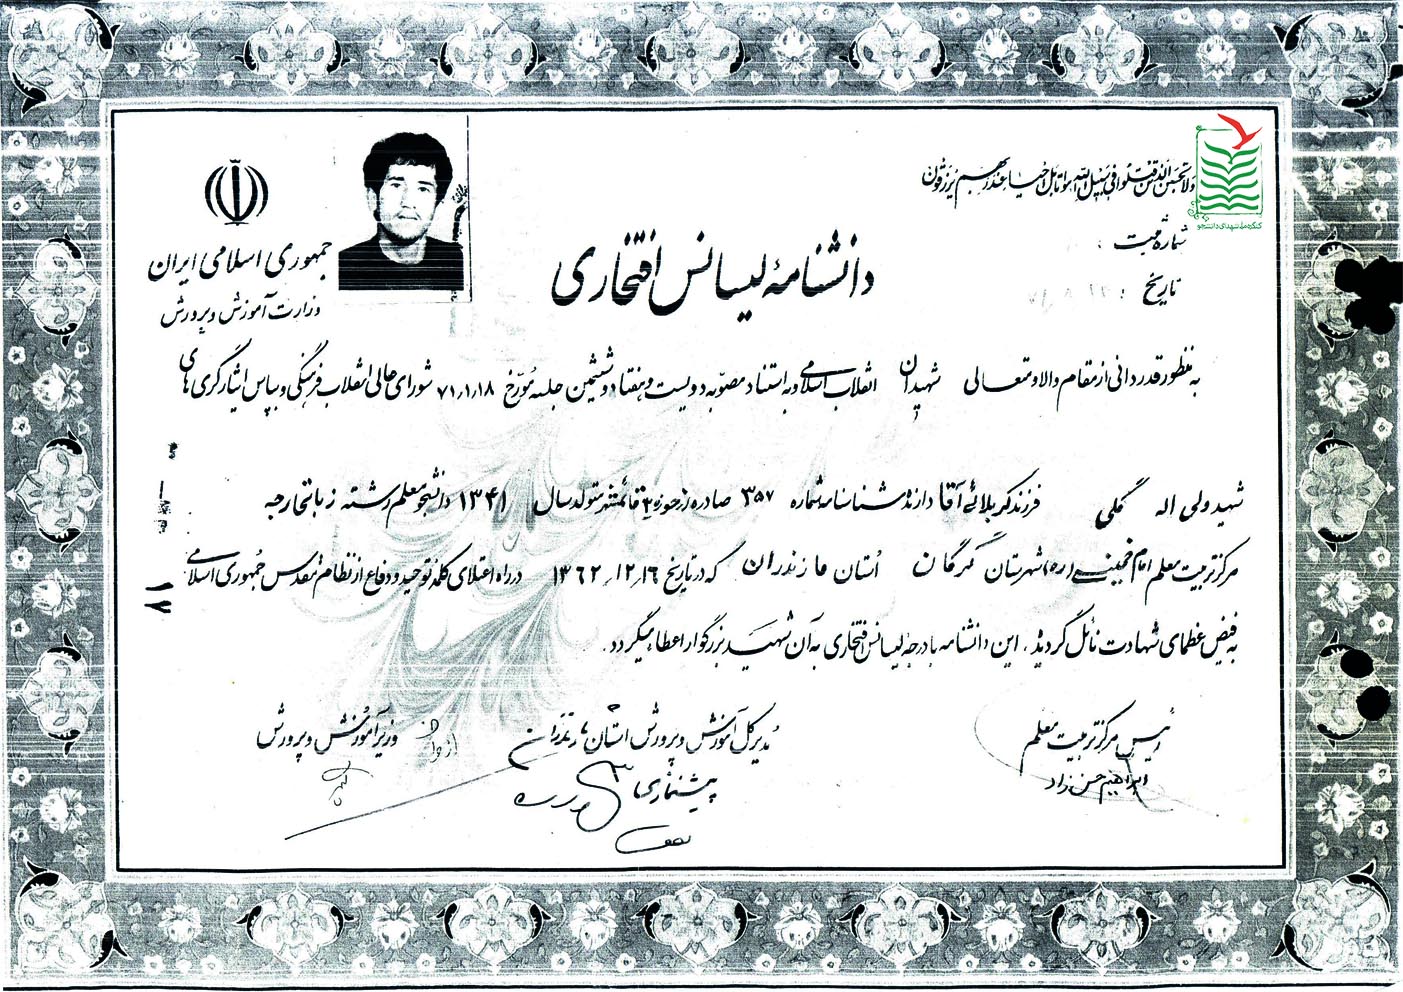 ولا تحسبن الذین قتلوا فی سبیل الله امواتا بل احیاء عند ربهم یرزقون
کنگره ملی شهدای دانشجو
جمهوری اسلامی ایران
وزارت آموزش و پرورش
شماره ثبت :
تاریخ :
دانشنامه لیسانس افتخاری
به منظور قدردانی از مقام والا و متعالی شهیدان انقلاب اسلامی و به استناد مصوبه دویست و هفتاد و ششمین جلسه مورخ ۷۱٫۱٫۱۸ شورای عالی انقلاب فرهنگی و بپاس ایثارگری های
شهید ولی اله گملی فرزند کربلائی آقا دارنده شناسنامه شماره ۳۵۷ صادره از حوزه ۲ قائمشهر متولد سال ۱۳۴۱ دانشجو معلم رشته زبانخارجه
مرکز تربیت معلم امام خمینی (ره) شهرستان گرگان استان مازندران که در تاریخ ۱۳۶۲٫۱۲٫۱۶ در راه اعتلای کلمه توحید و دفاع از نظام مقدس جمهوری اسلامی
به فیض عظمای شهادت نائل گردید ، این دانشنامه با درجه لیسانس افتخاری به آن شهید بزرگوار اعطاء میگردد .
رئیس مرکز تربیت معلم
ابراهیم حسن زاد
مدیر کل آموزش و پرورش استان مازندران
پیشنمازی
وزیر آموزش و پرورش